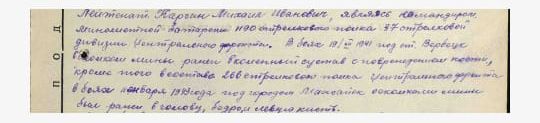 Лейтенант Каргин Михаил Иванович, являясь командиром
минометной батареи 1190 стрелкового полка 37 стрелковой
дивизии Центрального фронта. В боях 19/ 1941 под ст.
осколком мины ранен в коленный сустав с повреждением кости,
кроме того в составе 266 стрелкового полка Центрального фронта
в боях января 1943 года под городом осколками мины
был ранен в голову, бедром левую кисть.
П О Д